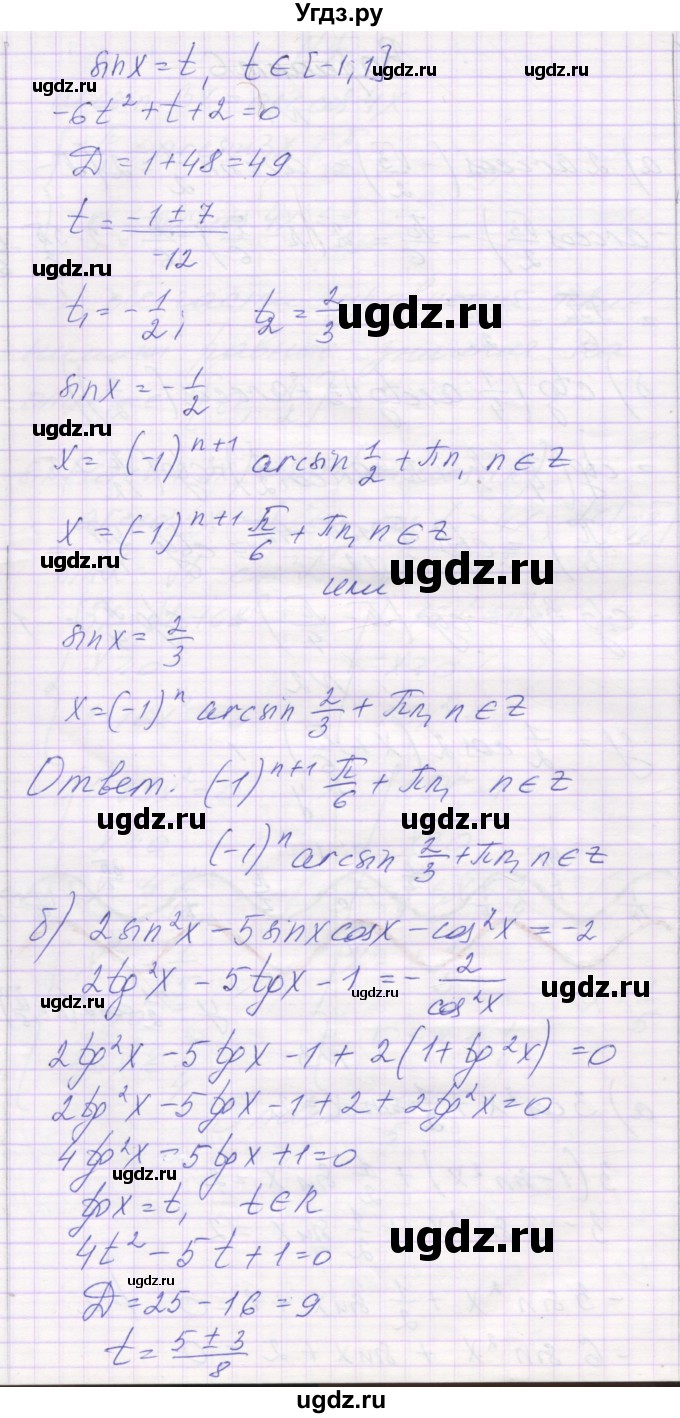 Угдз.ру
sinx = t, t ∈ [-1; 1]
ugdz.ru ugdz.ru
-6t² + t + 2 = 0
D = 1 + 48 = 49
t = (-1 ± 7)/(-12)
ugdz.ru
t₁ = -1/2; t₂ = 2/3
ugdz.ru
sinx = -1/2
ugdz.ru
x = (-1)ⁿ⁺¹ arcsin 1/2 + πn, n ∈ Z
x = (-1)ⁿ⁺¹ π/6 + πn, n ∈ Z
ugdz.ru ugdz.ru
или
sinx = 2/3
x = (-1)ⁿ arcsin 2/3 + πn, n ∈ Z
Ответ: (-1)ⁿ⁺¹ π/6 + πn, n ∈ Z
ugdz.ru ugdz.ru
(-1)ⁿ arcsin 2/3 + πn, n ∈ Z
б) 2sin²x - 5sinxcosx - cos²x = -2
2tg²x - 5tgx - 1 = - 2/cos²x
ugdz.ru ugdz.ru
2tg²x - 5tgx - 1 + 2(1 + tg²x) = 0
2tg²x - 5tgx - 1 + 2 + 2tg²x = 0
4tg²x - 5tgx + 1 = 0
ugdz.ru
tgx = t, t ∈ R
ugdz.ru
4t² - 5t + 1 = 0
ugdz.ru
D = 25 - 16 = 9
t = (5 ± 3)/8
ugdz.ru ugdz.ru
ugdz.ru